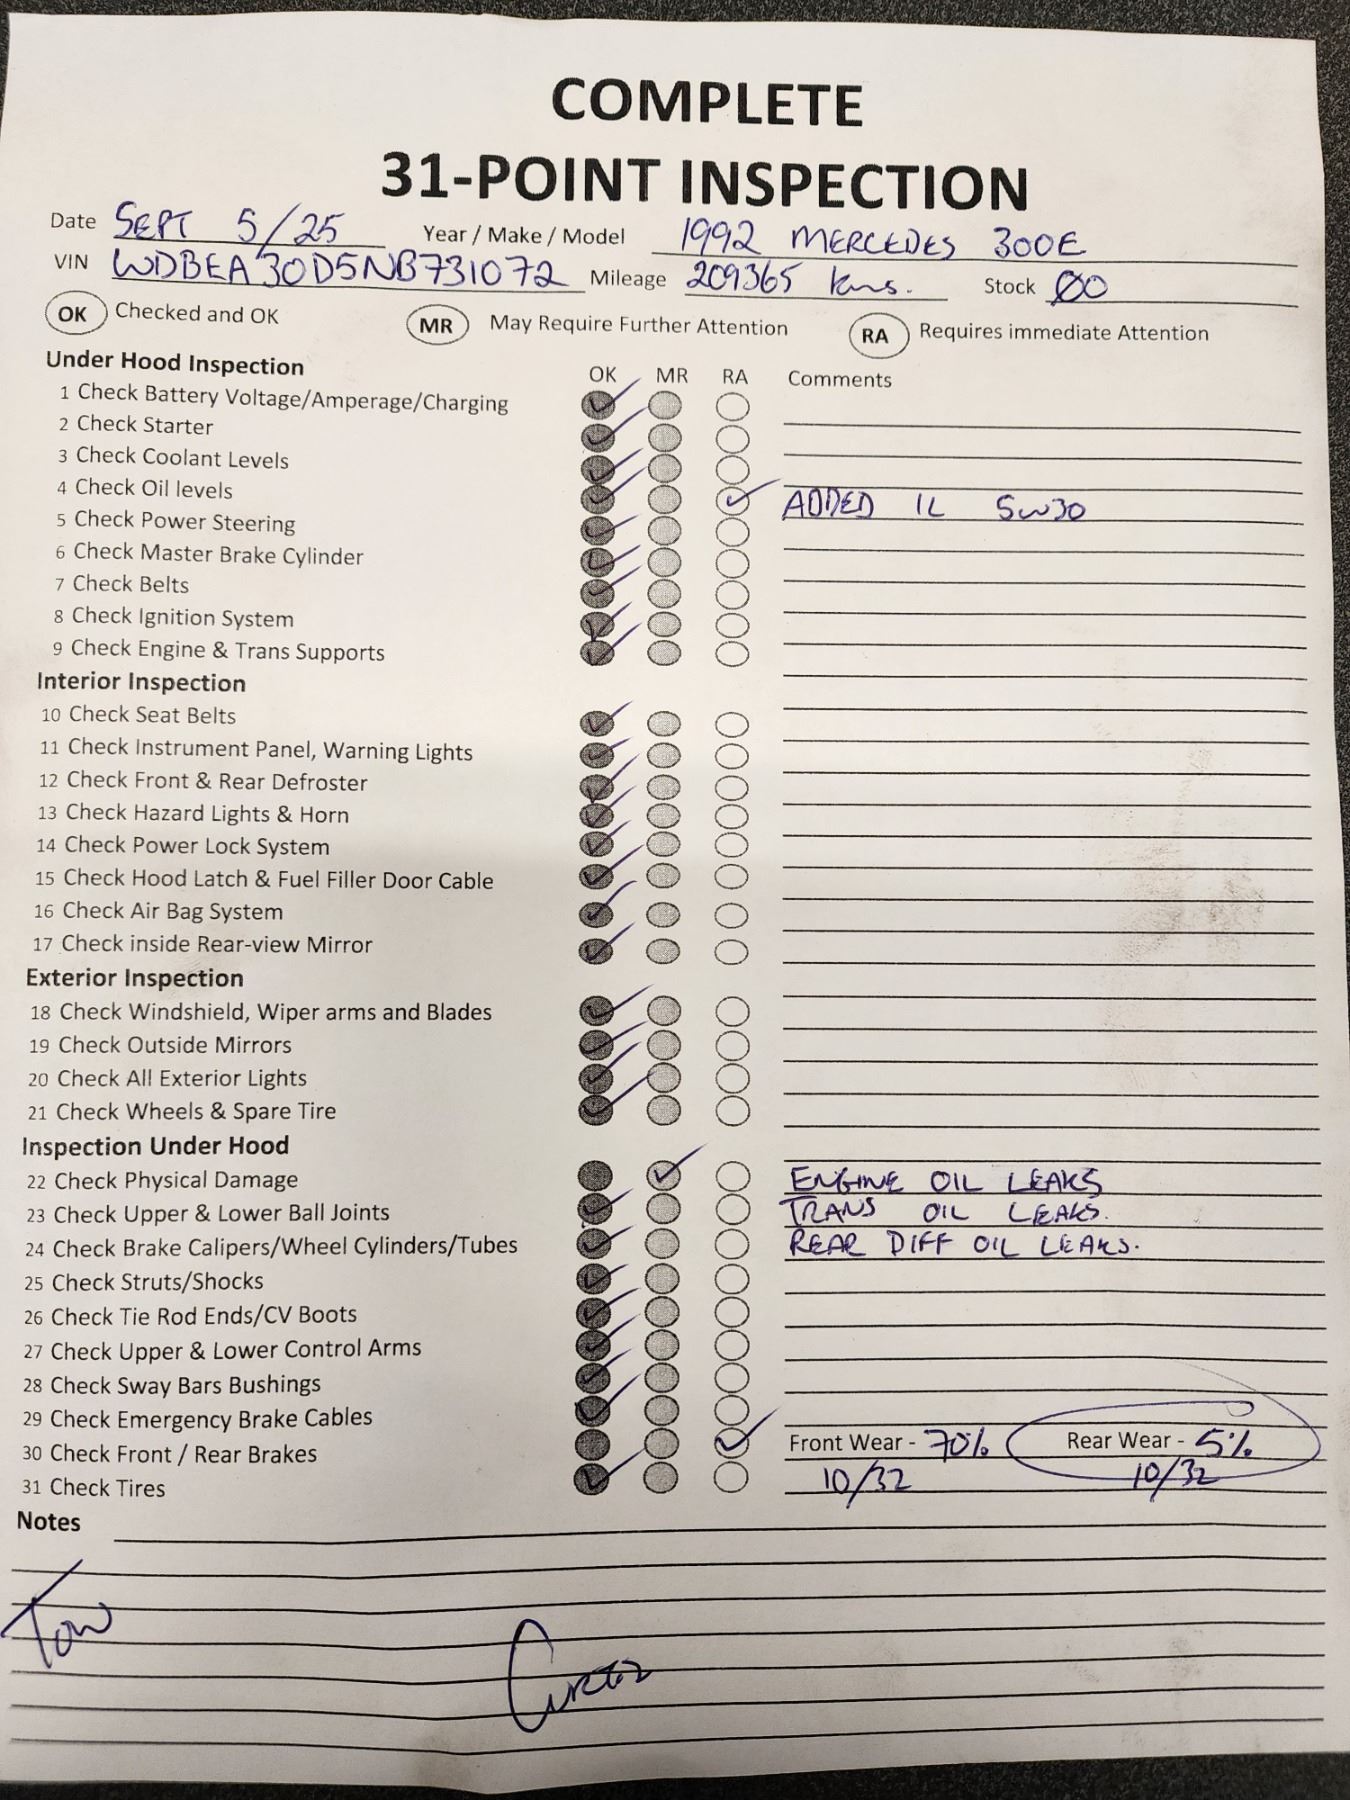 COMPLETE
31-POINT INSPECTION
Date SEPT 5/25 Year / Make / Model 1992 MERCEDES 300E
VIN WDBEA30D5NB731072 Mileage 209365 kms. Stock 00
OK Checked and OK MR May Require Further Attention RA Requires immediate Attention
Under Hood Inspection OK MR RA Comments
1 Check Battery Voltage/Amperage/Charging
2 Check Starter
3 Check Coolant Levels
4 Check Oil levels ADDED 1L 5W30
5 Check Power Steering
6 Check Master Brake Cylinder
7 Check Belts
8 Check Ignition System
9 Check Engine & Trans Supports
Interior Inspection
10 Check Seat Belts
11 Check Instrument Panel, Warning Lights
12 Check Front & Rear Defroster
13 Check Hazard Lights & Horn
14 Check Power Lock System
15 Check Hood Latch & Fuel Filler Door Cable
16 Check Air Bag System
17 Check inside Rear-view Mirror
Exterior Inspection
18 Check Windshield, Wiper arms and Blades
19 Check Outside Mirrors
20 Check All Exterior Lights
21 Check Wheels & Spare Tire
Inspection Under Hood
22 Check Physical Damage ENGINE OIL LEAKS
23 Check Upper & Lower Ball Joints TRANS OIL LEAKS.
24 Check Brake Calipers/Wheel Cylinders/Tubes REAR DIFF OIL LEAKS.
25 Check Struts/Shocks
26 Check Tie Rod Ends/CV Boots
27 Check Upper & Lower Control Arms
28 Check Sway Bars Bushings
29 Check Emergency Brake Cables
30 Check Front / Rear Brakes Front Wear - 70% Rear Wear - 5%
31 Check Tires 10/32 10/32
Notes